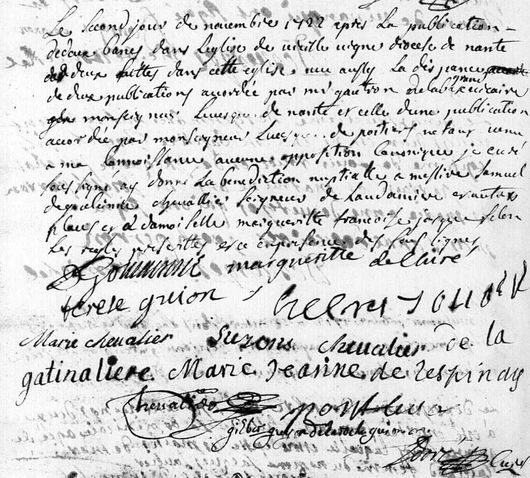 Le second jour de novembre 1722 apres la publication
de deux bancs dans l'eglise de vieille vigne diocese de nante
de deux faittes dans cette eglise vue aussy la dispance
de deux publications accordée par mr gautron de la vicaire
monseigneur Levesque de nante et celle d'une publication
accordée par monseigneur Levesque de poitiers ne tant venu
a ma connoissance aucune opposition Canonique je curé
soussigné ay donné La benediction nuptialle a messire Samuel
chevallier seigneur de Laudouiniere et autres
places et a damoiselle margueritte francoise selon
les regles prescrittes en presence des sous signés
marguerite de
terese guion
Marie chevalier Suzons chevalier de la
gatinaliere Marie Jeanne de Lespinay
chevalier
guion
Curé